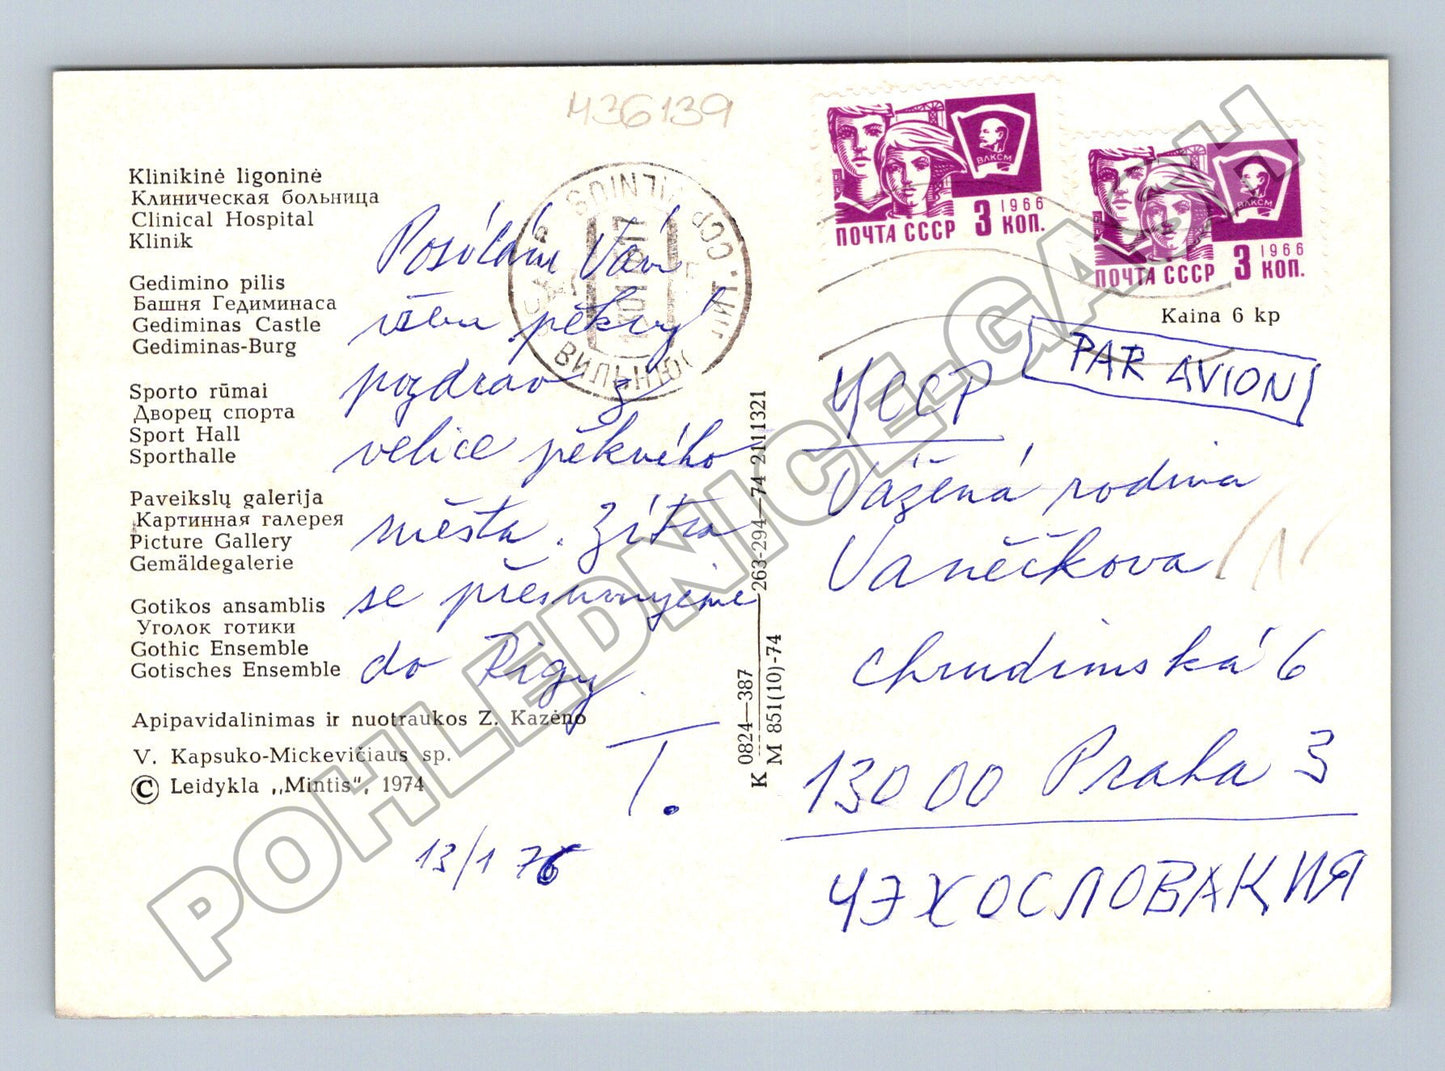 M36139
Klinikinė ligoninė
Клиническая больница
Clinical Hospital
Klinik
Gedimino pilis
Башня Гедиминаса
Gediminas Castle
Gediminas-Burg
Sporto rūmai
Дворец спорта
Sport Hall
Sporthalle
Paveikslų galerija
Картинная галерея
Picture Gallery
Gemäldegalerie
Gotikos ansamblis
Уголок готики
Gothic Ensemble
Gotisches Ensemble
Apipavidalinimas ir nuotraukos Z. Kazėno
V. Kapsuko-Mickevičiaus sp.
© Leidykla „Mintis“, 1974
Posílám Vám
všem pěkný
pozdrav z
velice pěkného
města. Zítra
se přesunujeme
do Rigy.
T.
13/1 76
VILNIUS
ВИЛЬНЮС
К 0824—387 263-294—74 2111321
М 851(10)-74
ВЛКСМ
1966
ПОЧТА СССР 3 КОП.
ВЛКСМ
1966
ПОЧТА СССР 3 КОП.
Kaina 6 kp
PAR AVION
ЧССР
Vážená rodina
Vaněčkova
Chrudimská 6
130 00 Praha 3
ЧЭХОСЛОВАКИЯ
POHLEDNICE-GAHH